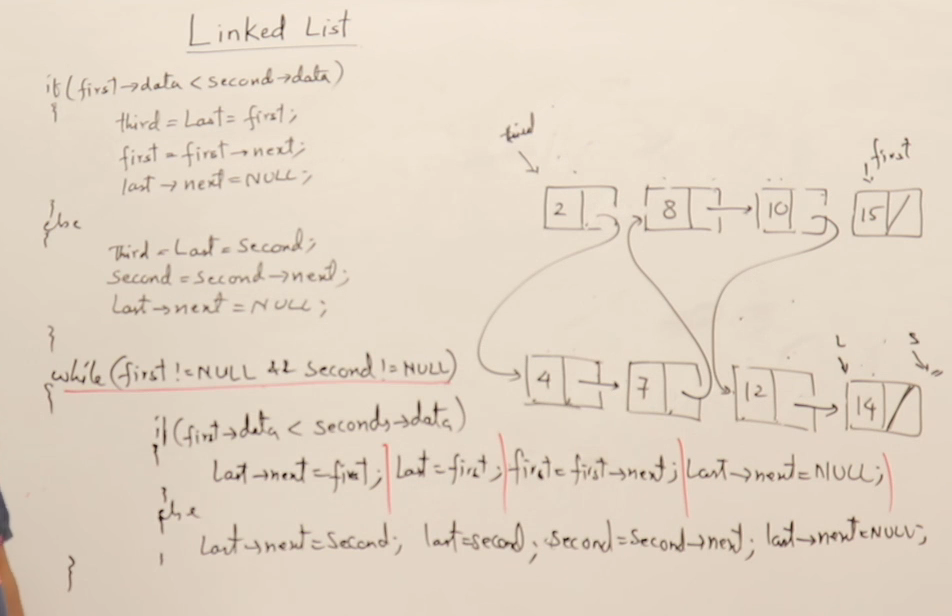 Linked List
if(first→data < second→data)
{
third = Last = first;
first = first→next;
last→next = NULL;
}
else
{
third = Last = Second;
Second = Second→next;
Last→next = NULL;
}
while(first != NULL && Second != NULL)
{
if(first→data < second→data)
{
Last→next = first; Last = first; first = first→next; Last→next = NULL;
}
else
{
Last→next = Second; last = second; second = Second→next; last→next = NULL;
}
third
first
2 8 10 15
L S
4 7 12 14